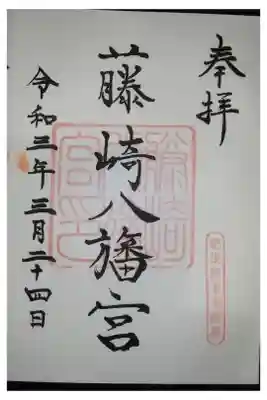 奉拝
藤崎八旛宮
令和三年三月二十四日